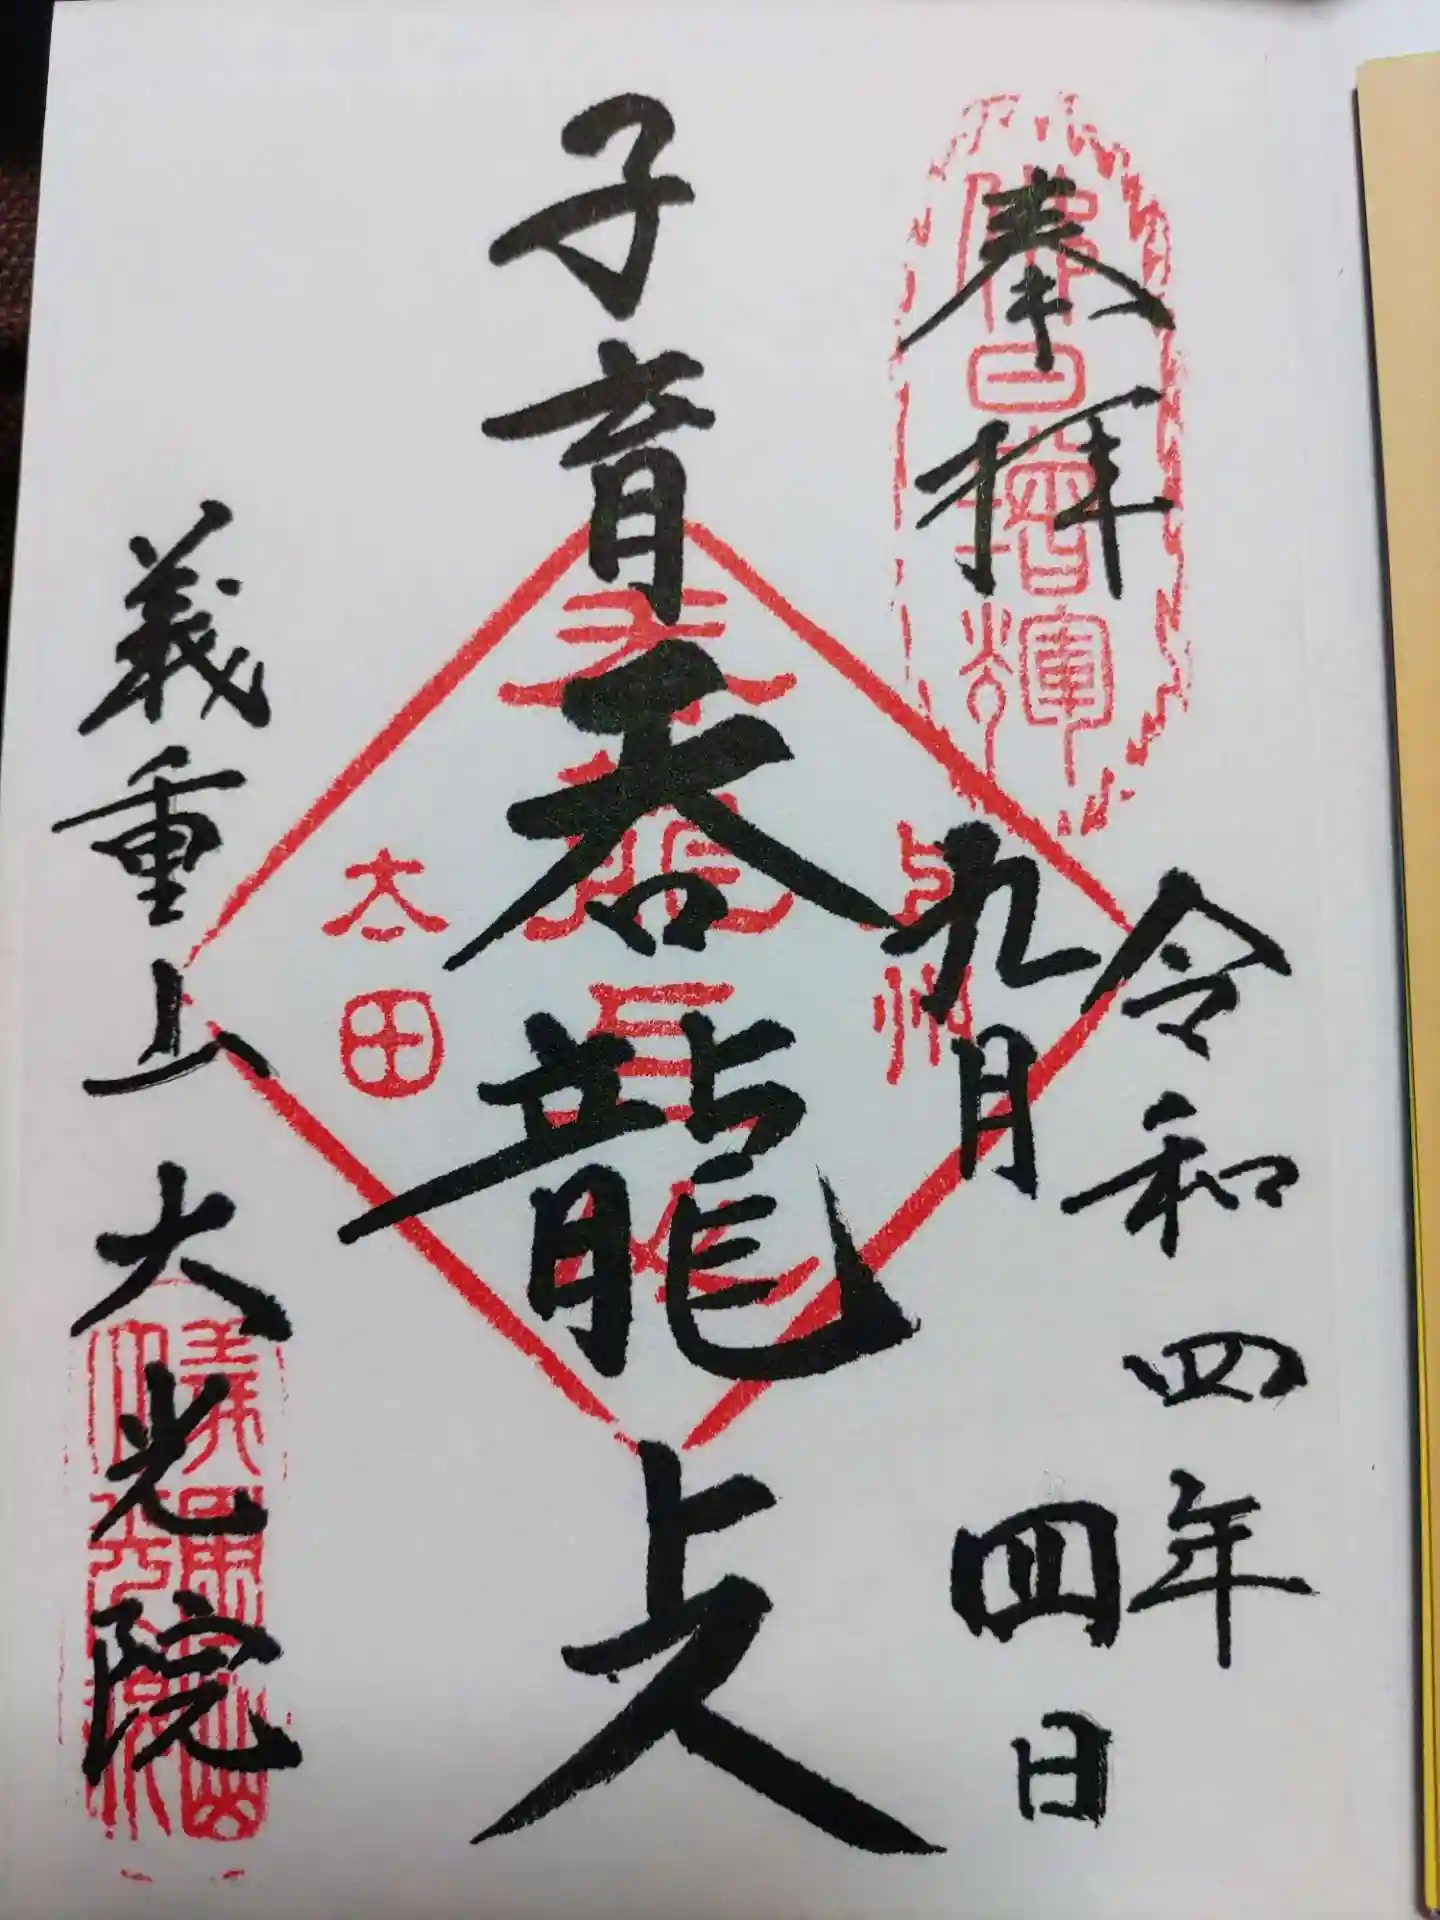 奉拝
令和四年
九月四日
子育呑龍上人
義重山 大光院
佛日増輝
上州
太田